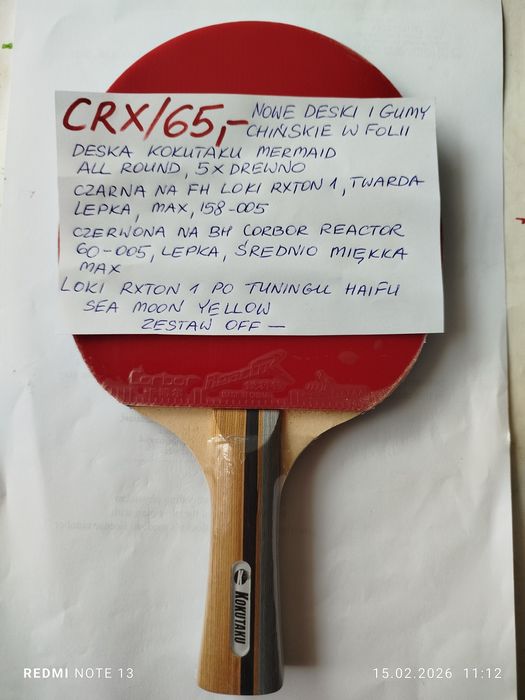 CRX/65,-
NOWE DESKI I GUMY
CHIŃSKIE W FOLII
DESKA KOKUTAKU MERMAID
ALL ROUND, 5X DREWNO
CZARNA NA FH LOKI RXTON 1, TWARDA
LEPKA, MAX, 158-005
CZERWONA NA BH CORBOR REACTOR
60-005, LEPKA, ŚREDNIO MIĘKKA
MAX
LOKI RXTON 1 PO TUNINGU HAIFU
SEA MOON YELLOW
ZESTAW OFF —
Corbor Reactor
KOKUTAKU
REDMI NOTE 13
15.02.2026 11:12